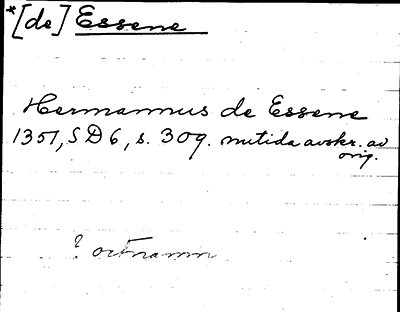 *[de] Essene
Hermannus de Essene
1351, SD6, s. 309. nutida avskr. av
orig.
? ortnamn